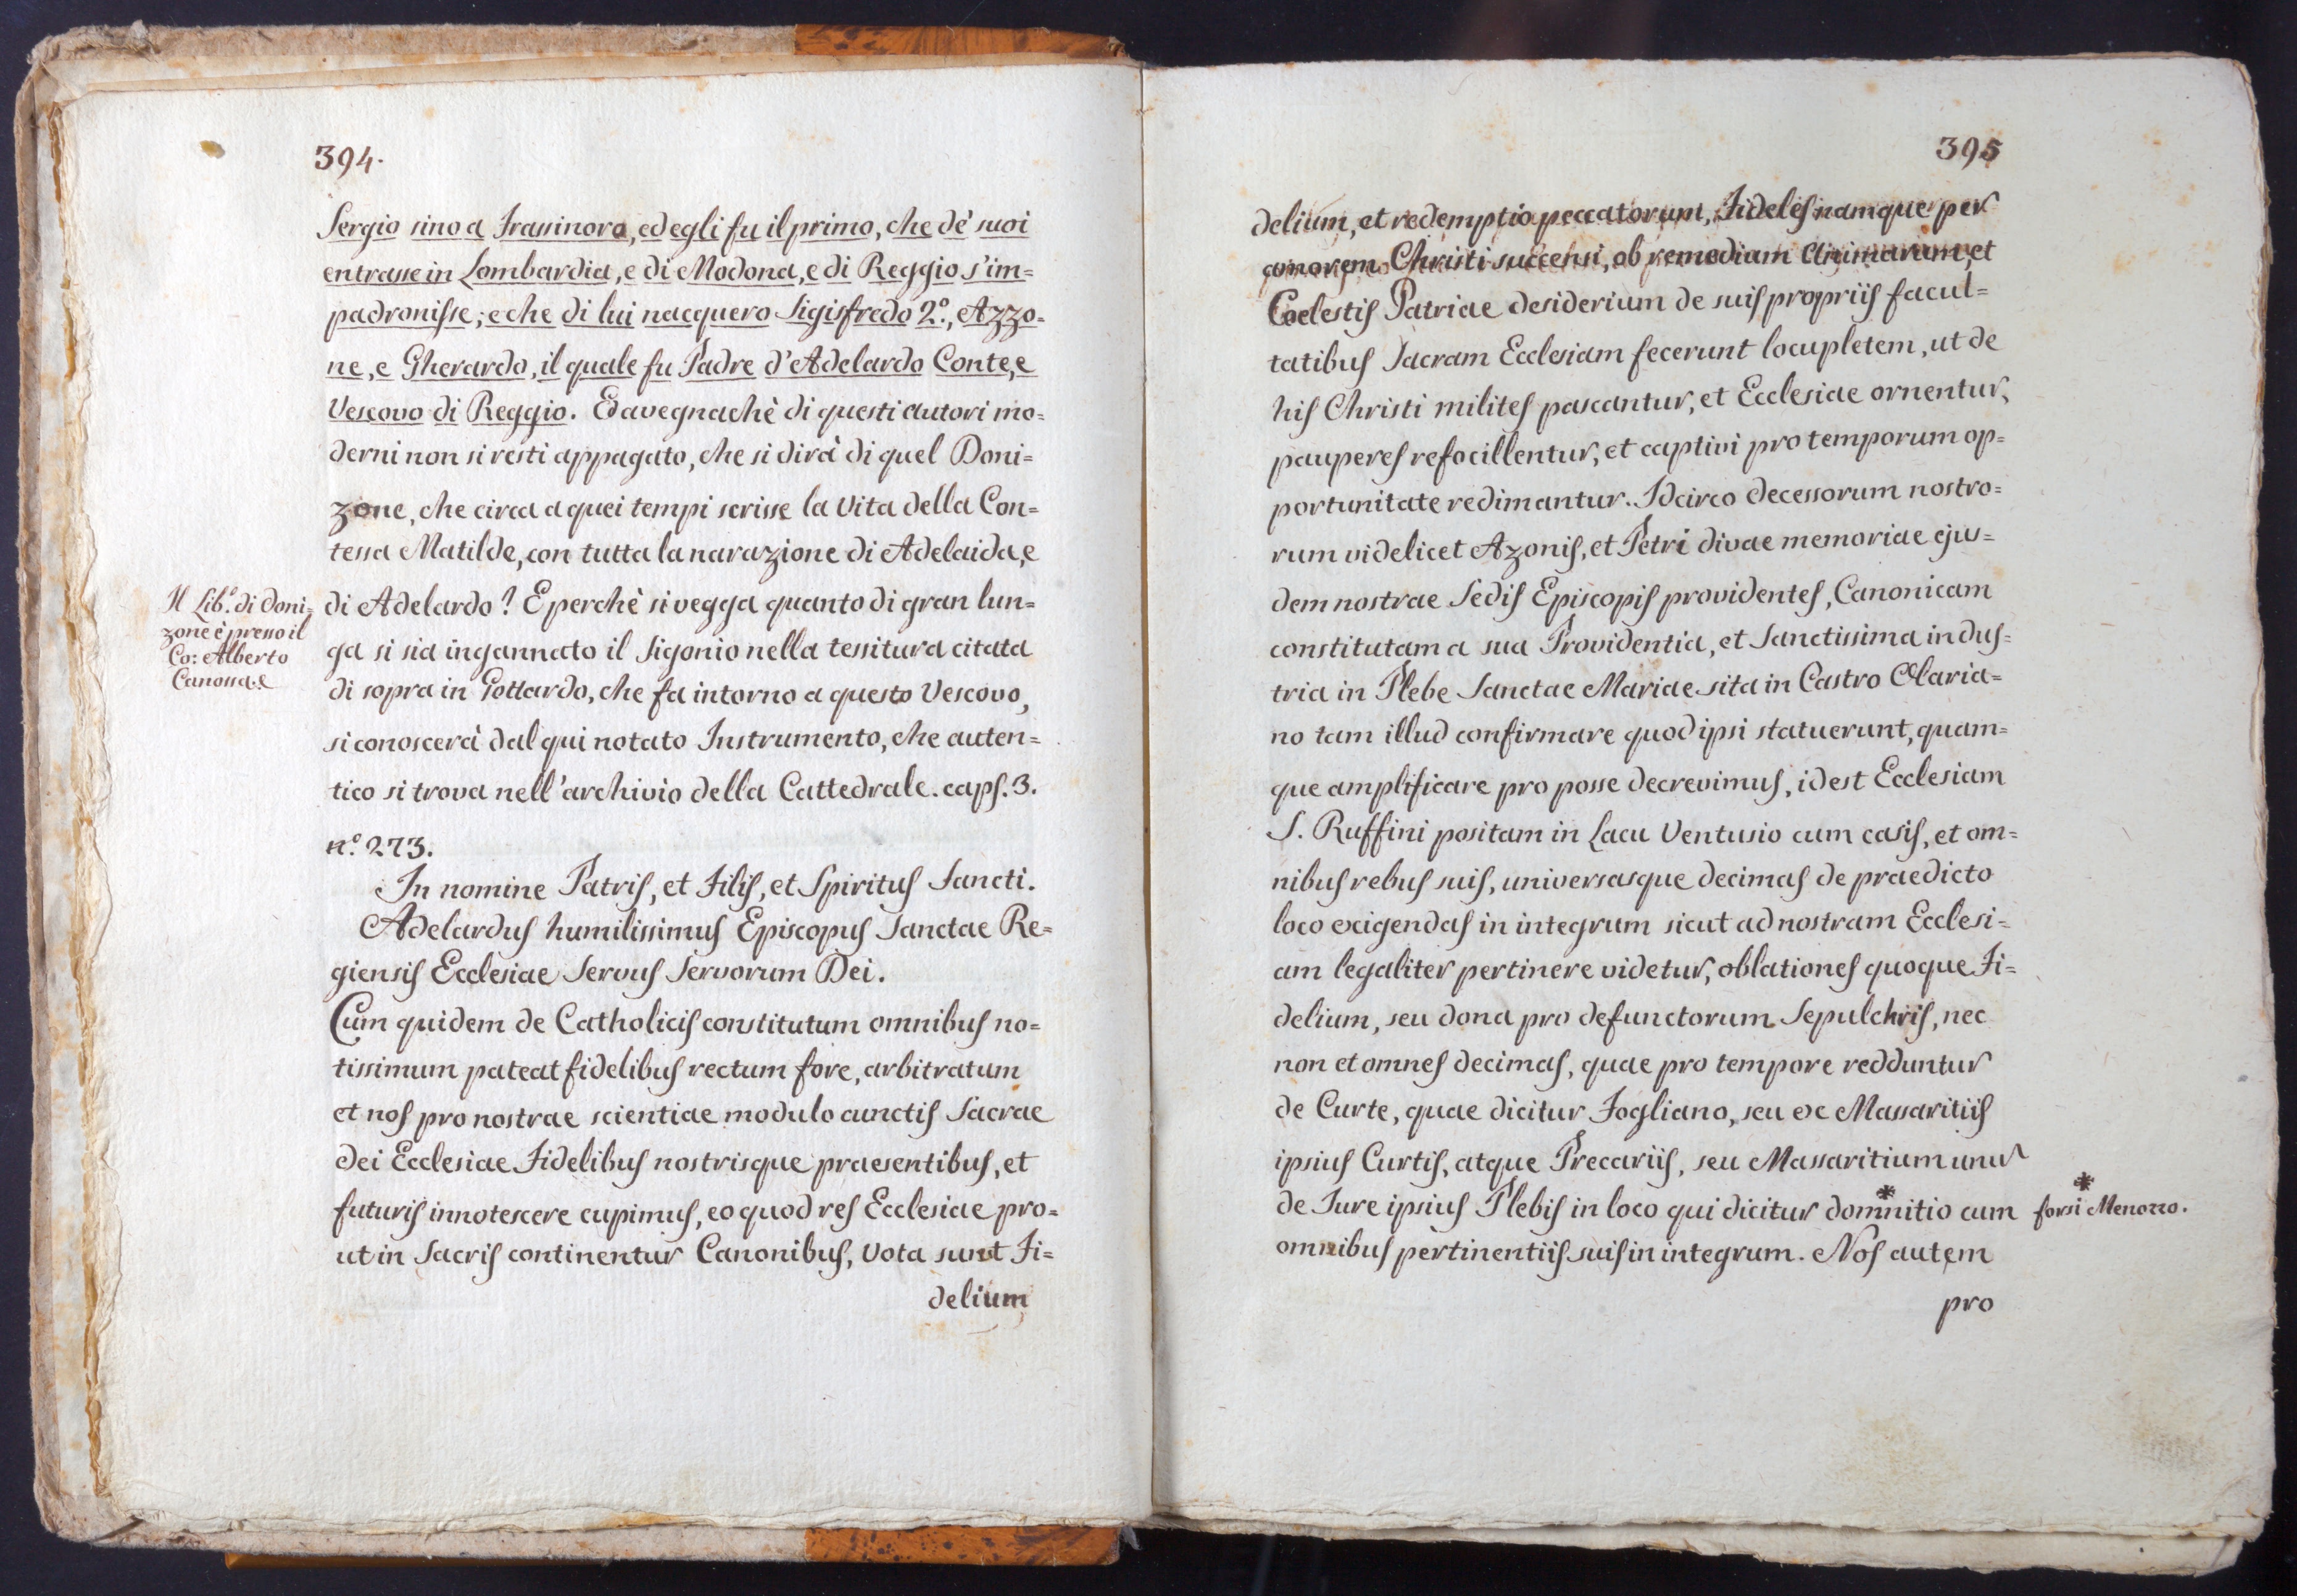 394.
Sergio sino a Frassinoro, ed egli fu il primo, che de' suoi
entrasse in Lombardia, e di Modona, e di Reggio s'im=
padronisse; e che di lui nacquero Sigisfredo 2.º, Azzo=
ne, e Gherardo, il quale fu Padre d'Adelardo Conte, e
Vescovo di Reggio. Ed avegnachè di questi autori mo=
derni non si resti appagato, che si dirà di quel Doni=
zone, che circa a quei tempi scrisse la Vita della Con=
tessa Matilde, con tutta la narazione di Adelaida, e
di Adelardo? E perchè si vegga quanto di gran lun=
ga si sia ingannato il Sigonio nella tessitura citata
di sopra in Gottardo, che fa intorno a questo Vescovo,
si conoscerà dal qui notato Instrumento, che auten=
tico si trova nell'archivio della Cattedrale. caps. 3.
n.º 273.
Il Lib.º di Doni=
zone è presso il
Co: Alberto
Canossa.
In nomine Patris, et Filis, et Spiritus Sancti.
Adelardus humilissimus Episcopus Sanctae Re=
giensis Ecclesiae Servus Servorum Dei.
Cum quidem de Catholicis constitutum omnibus no=
tissimum pateat fidelibus rectum fore, arbitratum
et nos pro nostrae scientiae modulo cunctis Sacrae
Dei Ecclesiae Fidelibus nostrisque praesentibus, et
futuris innotescere cupimus, eo quod res Ecclesiae pro=
ut in Sacris continentur Canonibus, Vota sunt Fi=
delium
395
delium, et redemptio peccatorum, Fideles namque per
amorem Christi succensi, ob remedium Animarum, et
Coelestis Patriae desiderium de suis propriis facul=
tatibus Sacram Ecclesiam fecerunt locupletem, ut de
his Christi milites pascantur, et Ecclesiae ornentur,
pauperes refocillentur, et captivi pro temporum op=
portunitate redimantur. Idcirco decessorum nostro=
rum videlicet Azonis, et Petri divae memoriae ejus=
dem nostrae Sedis Episcopis providentes, Canonicam
constitutam a sua Providentia, et Sanctissima indus=
tria in Plebe Sanctae Mariae sita in Castro Olaria=
no tam illud confirmare quod ipsi statuerunt, quam=
que amplificare pro posse decrevimus, idest Ecclesiam
S. Ruffini positam in Lacu Ventusio cum casis, et om=
nibus rebus suis, universasque decimas de praedicto
loco exigendas in integrum sicut ad nostram Ecclesi=
am legaliter pertinere videtur, oblationes quoque Fi=
delium, seu dona pro defunctorum Sepulchris, nec
non et omnes decimas, quae pro tempore redduntur
de Curte, quae dicitur Fogliano, seu ex Massaritiis
ipsius Curtis, atque Precariis, seu Massaritium unu
de Jure ipsius Plebis in loco qui dicitur domnitio * cum
omnibus pertinentiis suis in integrum. Nos autem
pro
*
forsi Menozzo.